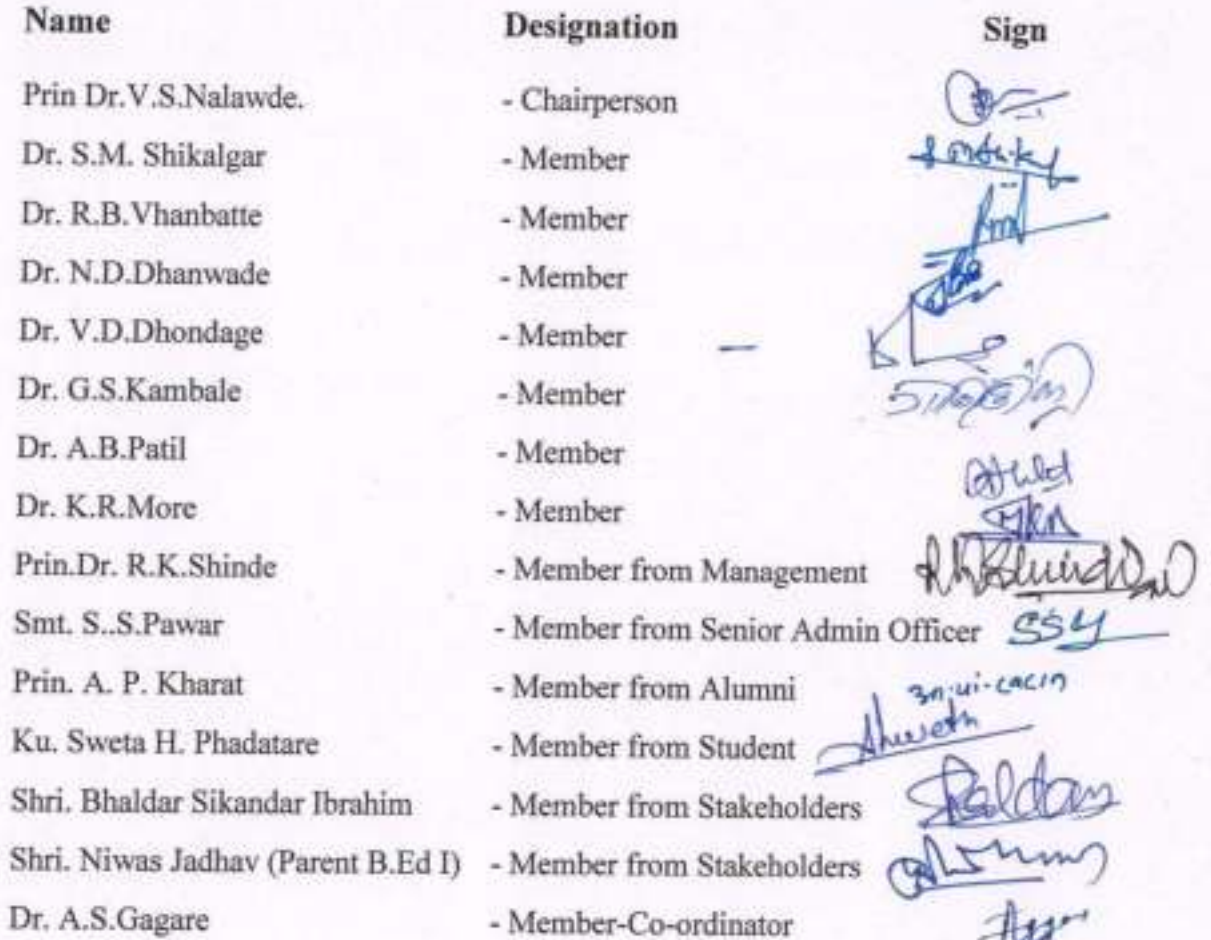 Name Designation Sign
Prin Dr.V.S.Nalawde. - Chairperson
Dr. S.M. Shikalgar - Member
Dr. R.B.Vhanbatte - Member
Dr. N.D.Dhanwade - Member
Dr. V.D.Dhondage - Member
Dr. G.S.Kambale - Member
Dr. A.B.Patil - Member
Dr. K.R.More - Member
Prin.Dr. R.K.Shinde - Member from Management
Smt. S..S.Pawar - Member from Senior Admin Officer
Prin. A. P. Kharat - Member from Alumni
Ku. Sweta H. Phadatare - Member from Student
Shri. Bhaldar Sikandar Ibrahim - Member from Stakeholders
Shri. Niwas Jadhav (Parent B.Ed I) - Member from Stakeholders
Dr. A.S.Gagare - Member-Co-ordinator